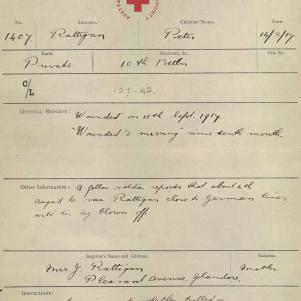 SOCIETY
AUSTRA
No. Surname. Christian Names. Date.
1407. Rattigan Peter 14/2/17
Rank. Regiment, &c. File No.
Private 10th Battn
C/L 127-42.
OFFICIAL REPORTS: Wounded on 11th Sept. 1917.
"Wounded & missing" since tenth month.
Other Information: A fellow soldier reports that about 4th
August he saw Rattigan close to German lines
with his leg blown off.
Inquirer's Name and Address. Relation.
Mrs J. Rattigan Mother.
Pleasant Avenue, Glandore.
Instructions: